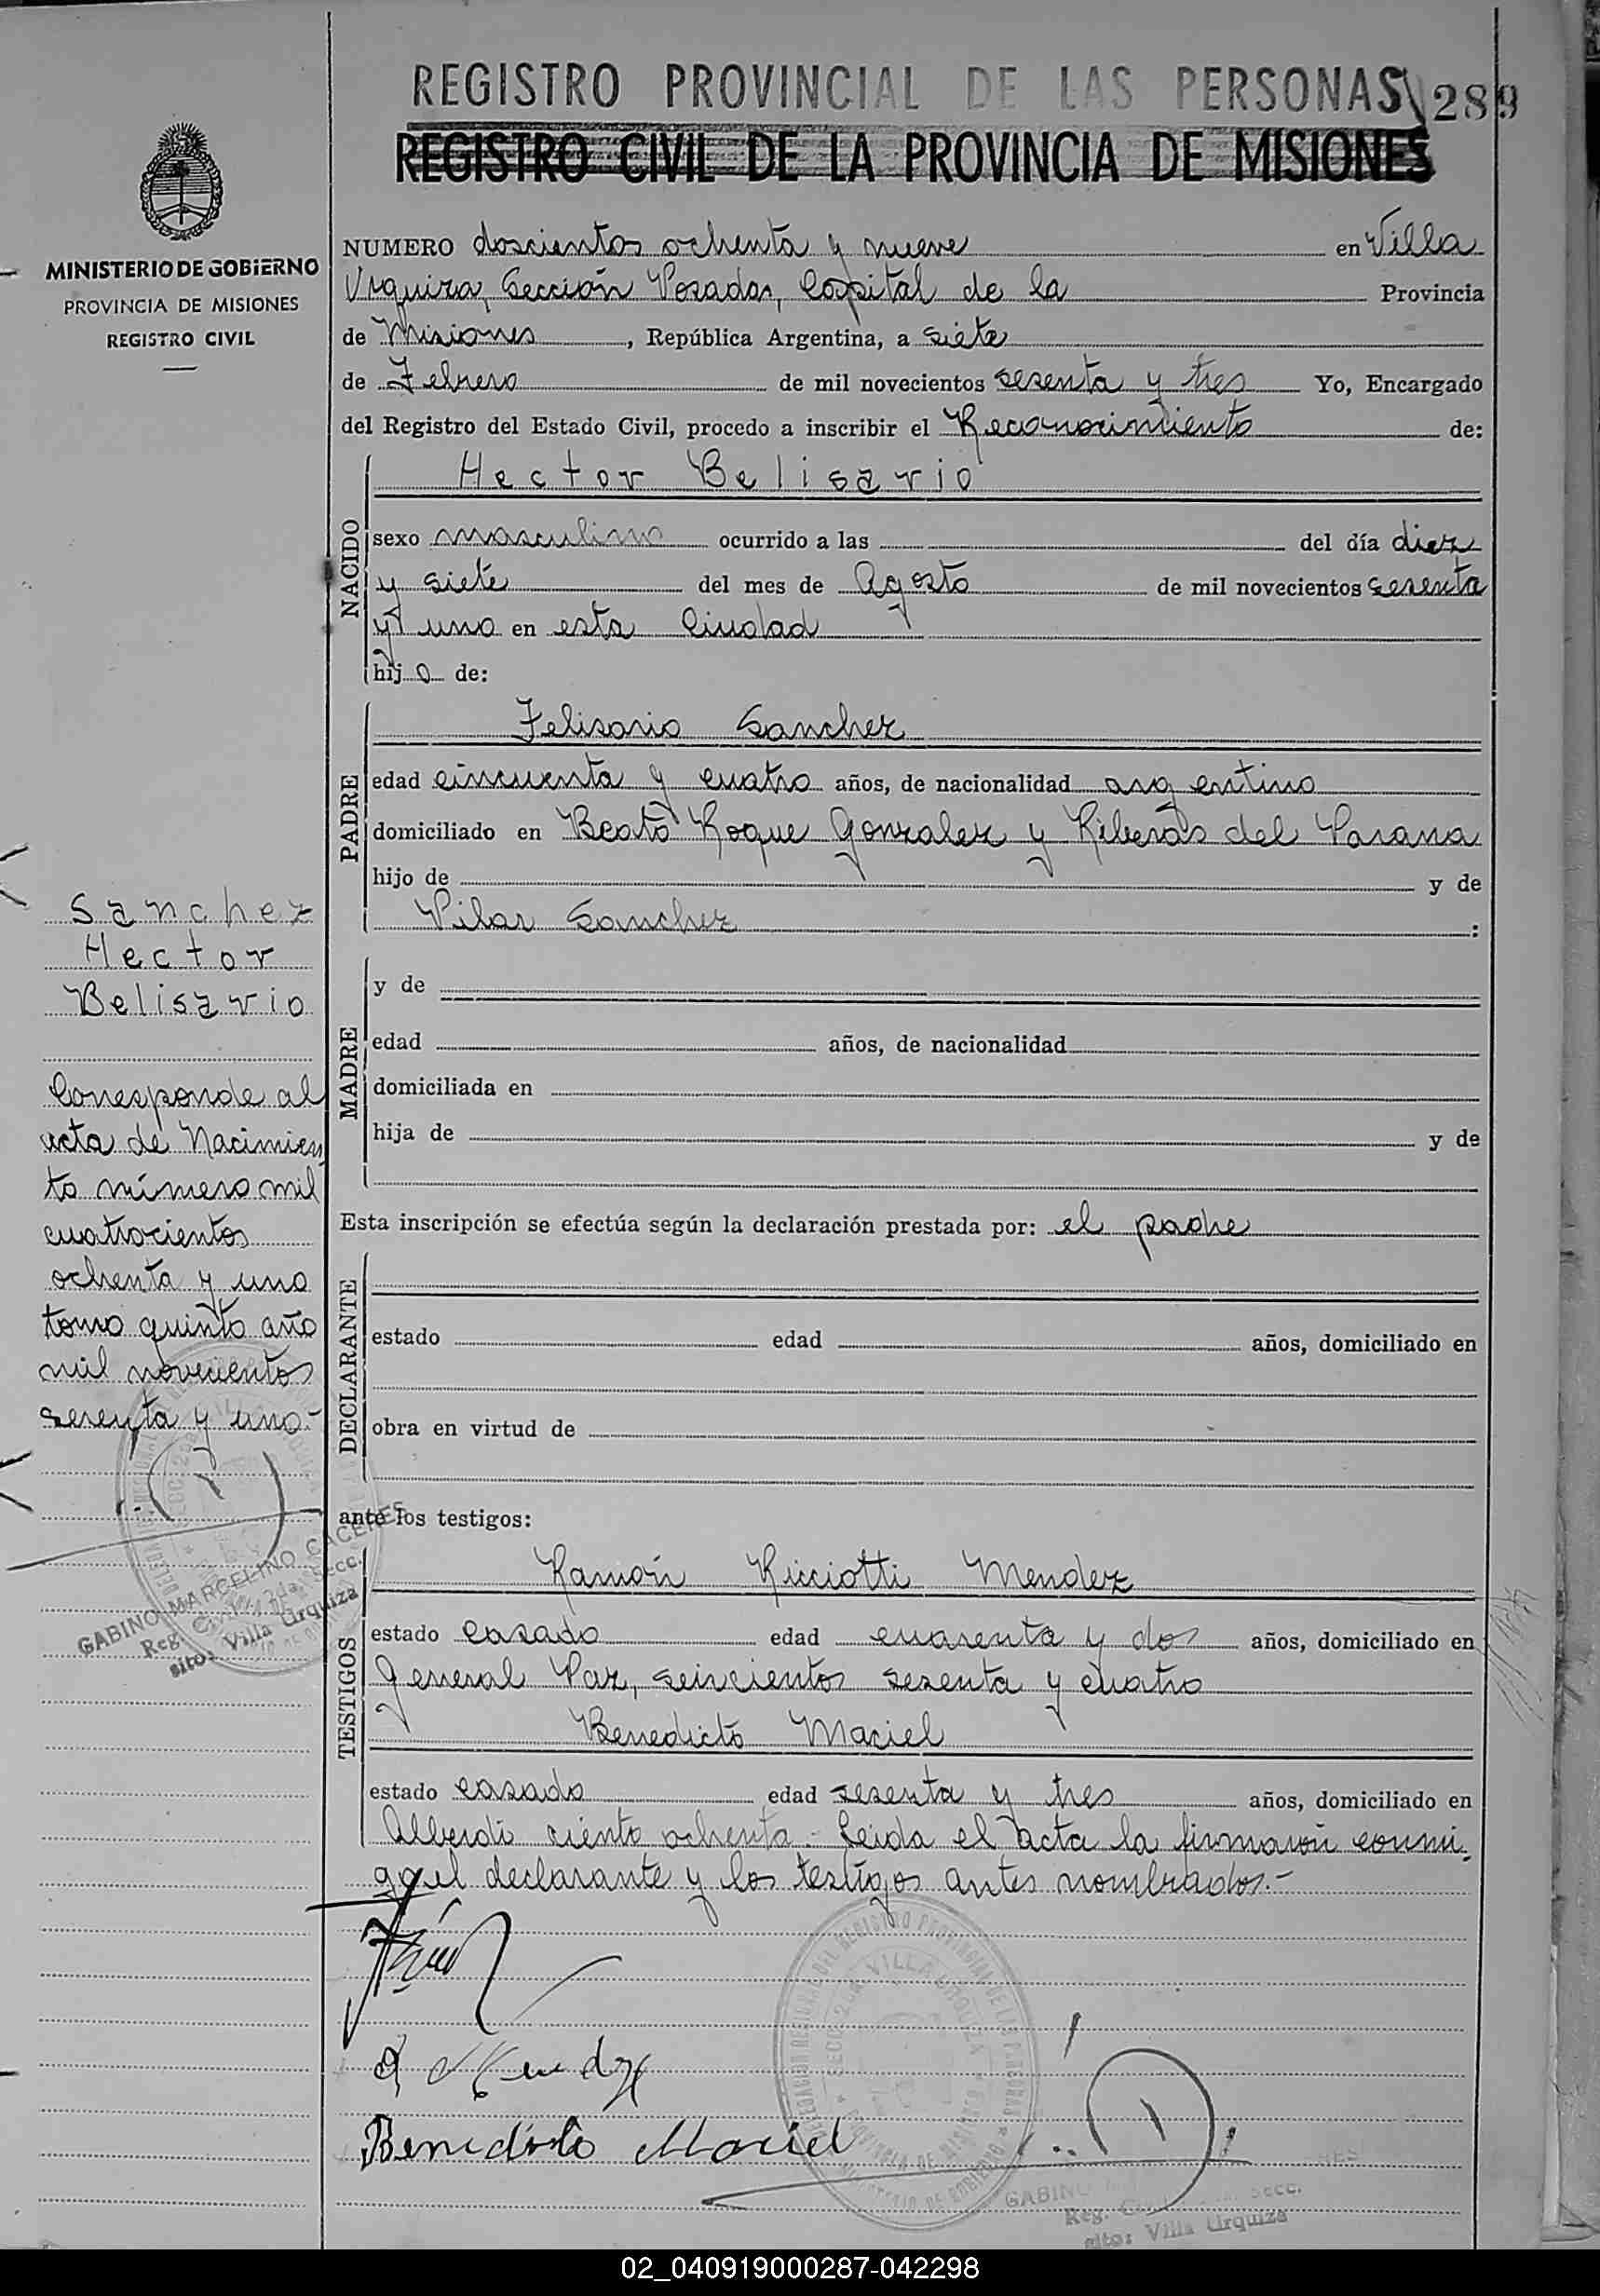 REGISTRO PROVINCIAL DE LAS PERSONAS 289
REGISTRO CIVIL DE LA PROVINCIA DE MISIONES
MINISTERIO DE GOBIERNO
PROVINCIA DE MISIONES
REGISTRO CIVIL
NUMERO doscientos ochenta y nueve en Villa
Urquiza, Sección Posadas, Capital de la Provincia
de Misiones, República Argentina, a siete
de Febrero de mil novecientos sesenta y tres Yo, Encargado
del Registro del Estado Civil, procedo a inscribir el Reconocimiento de:
NACIDO
Hector Belisario
sexo masculino ocurrido a las del día diez
y siete del mes de Agosto de mil novecientos sesenta
y uno en esta Ciudad
hijo de:
PADRE
Felisario Sanchez
edad cincuenta y cuatro años, de nacionalidad argentino
domiciliado en Beato Roque Gonzalez y Riberas del Parana
hijo de y de
Pilar Sanchez :
MADRE
y de
edad años, de nacionalidad
domiciliada en
hija de y de
Esta inscripción se efectúa según la declaración prestada por: el padre
DECLARANTE
estado edad años, domiciliado en
obra en virtud de
ante los testigos:
TESTIGOS
Ramón Ricciotti Mendez
estado casado edad cuarenta y dos años, domiciliado en
General Paz, seiscientos sesenta y cuatro
Benedicto Maciel
estado casado edad sesenta y tres años, domiciliado en
Alberdi ciento ochenta.- Leida el acta la firmaron conmi-
go el declarante y los testigos antes nombrados.-
Benedicto Maciel
Sanchez
Hector
Belisario
Corresponde al
acta de Nacimien
to número mil
cuatrocientos
ochenta y uno
tomo quinto año
mil novecientos
sesenta y uno.-
GABINO MARCELINO CACERES
Reg. Civil 2da. Secc.
sito: Villa Urquiza
GABINO
Reg. Secc.
sito: Villa Urquiza
02_040919000287-042298